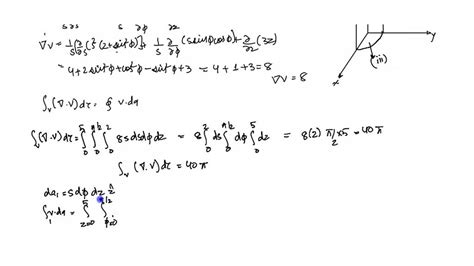 ∇v = 1/s ∂/∂s (s²(2+sin²ϕ)) + 1/s ∂/∂ϕ (s sinϕ cosϕ) + ∂/∂z (3z)
= 4+2sin²ϕ+cos²ϕ−sin²ϕ+3 = 4+1+3=8
∇v = 8
y
x
(iii)
∫v (∇.v)dτ = ∮ v.da
∫v (∇.v)dτ = ∫₀⁵ ∫₀^π/2 ∫₀² 8s ds dϕ dz = 8∫₀² ds ∫₀^π/2 dϕ ∫₀⁵ dz = 8(2) π/2 ×5 = 40π
∫v (∇.v)dτ = 40π
da₁ = s dϕ dz
∫₁ v.da = ∫z=0⁵ ∫ϕ=0^π/2